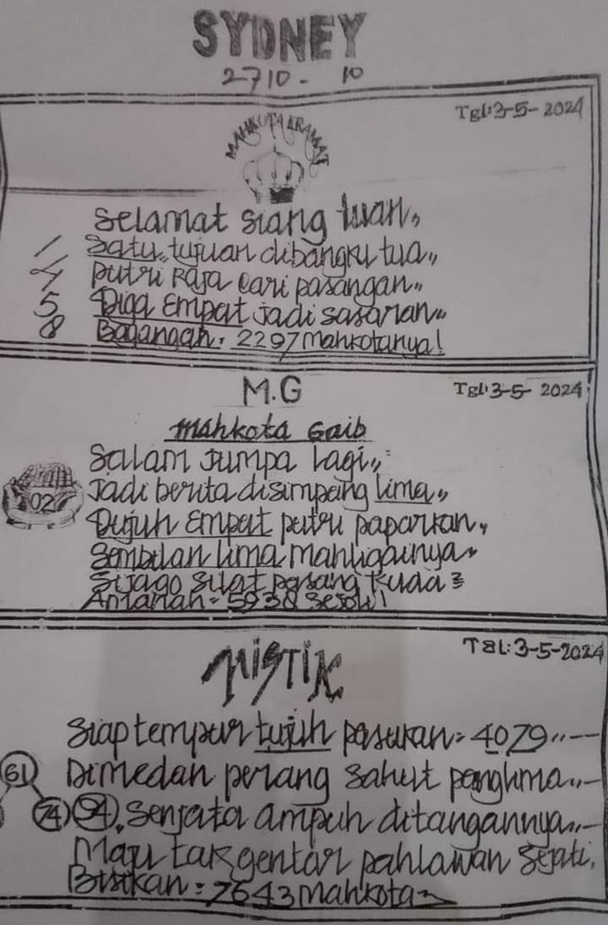 SYDNEY
2710 - 10
Tgl:3-5-2024
MAHKOTA KRAMAT
Selamat siang tuan,,
1 Satu,, tujuan dibangku tua,,
4 putri Raja cari pasangan,,
5 Diga Empat jadi sasaran,,
8 Bagangan: 2297 Mahkotanya!
M.G
Tgl:3-5-2024!
Mahkota Gaib
Salam jumpa lagi,,
02 Jadi berita disimpang lima,,
Dujuh Empat putri paparkan,,
Sembilan lima mahligainya
Sijago silat pasang kuda²
Amanah = 5938
MISTIK
Tgl:3-5-2024
Siap tempur tujuh pasukan = 4079,,
61 Dimedan perang sahut panglima,,
74 94. Senjata ampuh ditangannya,,
Maju tak gentar pahlawan sejati,
Bisikan = 7643 Mahkota